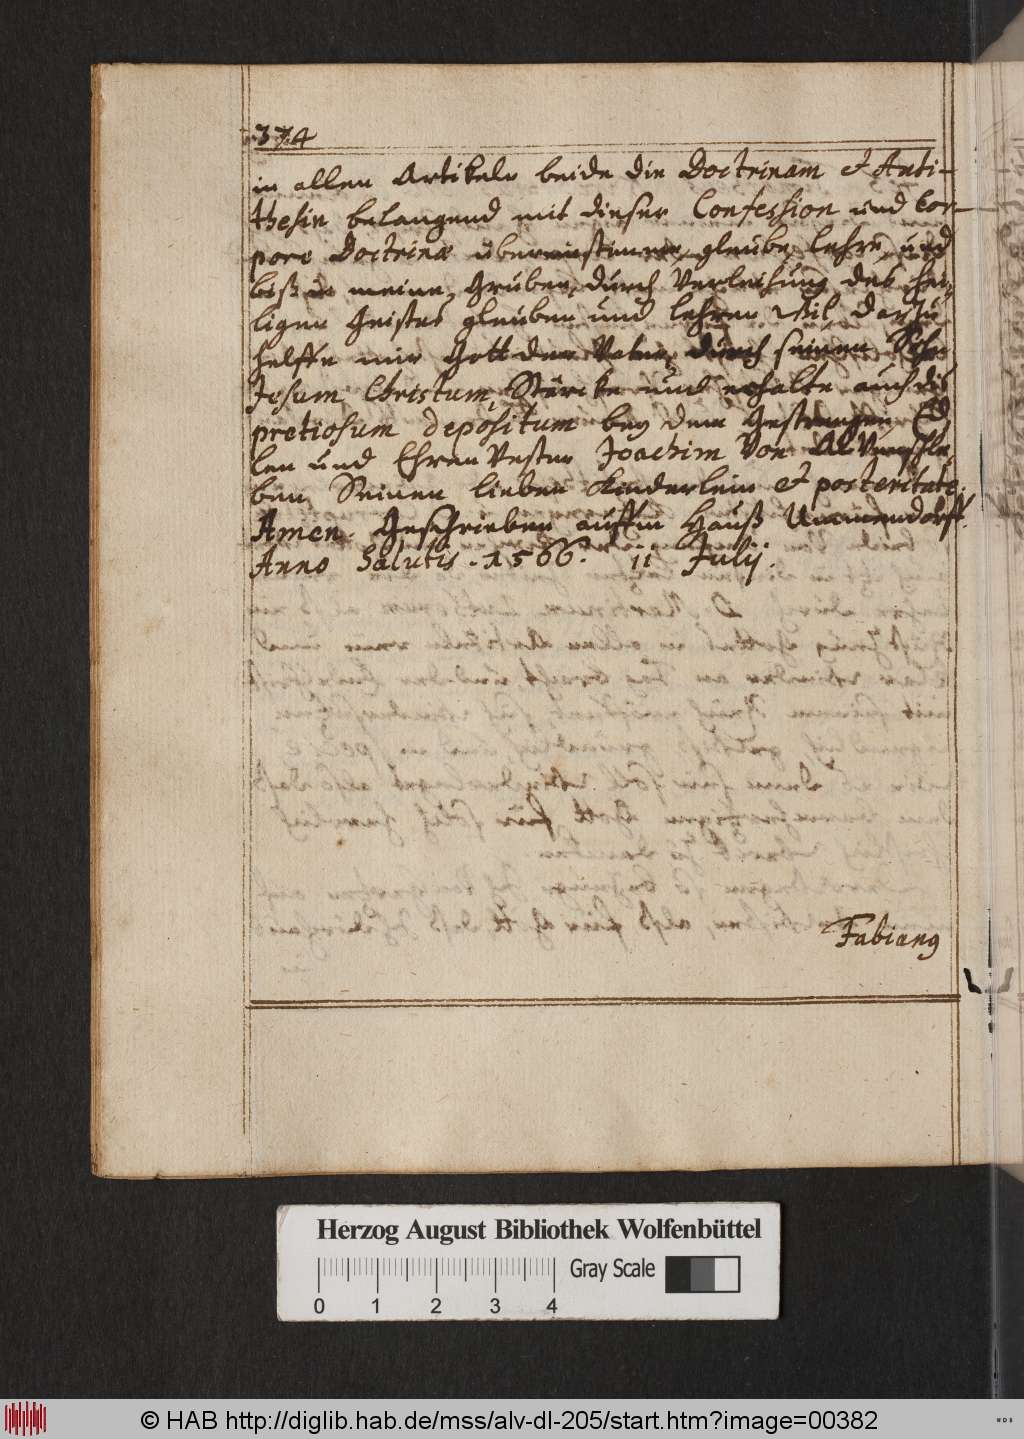 374
in allen Artikeln beide die Doctrinam et Anti-
thesin belangend mit dieser Confession und Cor-
pore Doctrinæ ubereinstimme, gleube, lehre, und
biß in meine Gruben, durch Verleihung des hei-
ligen Geistes gleuben und lehren wil, darzu
helffe mir Gott der Vater, durch seinen Sohn
Jesum Christum, Stärcke und erhalte auch diß
pretiosum depositum bey dem Gestrengen Ed
len und Ehrenvesten Joachim Von Alvenschle-
ben, Seinen lieben Kinderlein et posteritate.
Amen. Geschrieben auffm Hauß Ummendorff.
Anno Salutis. 1566. 11 Julij.
Fabianus
Herzog August Bibliothek Wolfenbüttel
0 1 2 3 4 Gray Scale
© HAB http://diglib.hab.de/mss/alv-dl-205/start.htm?image=00382